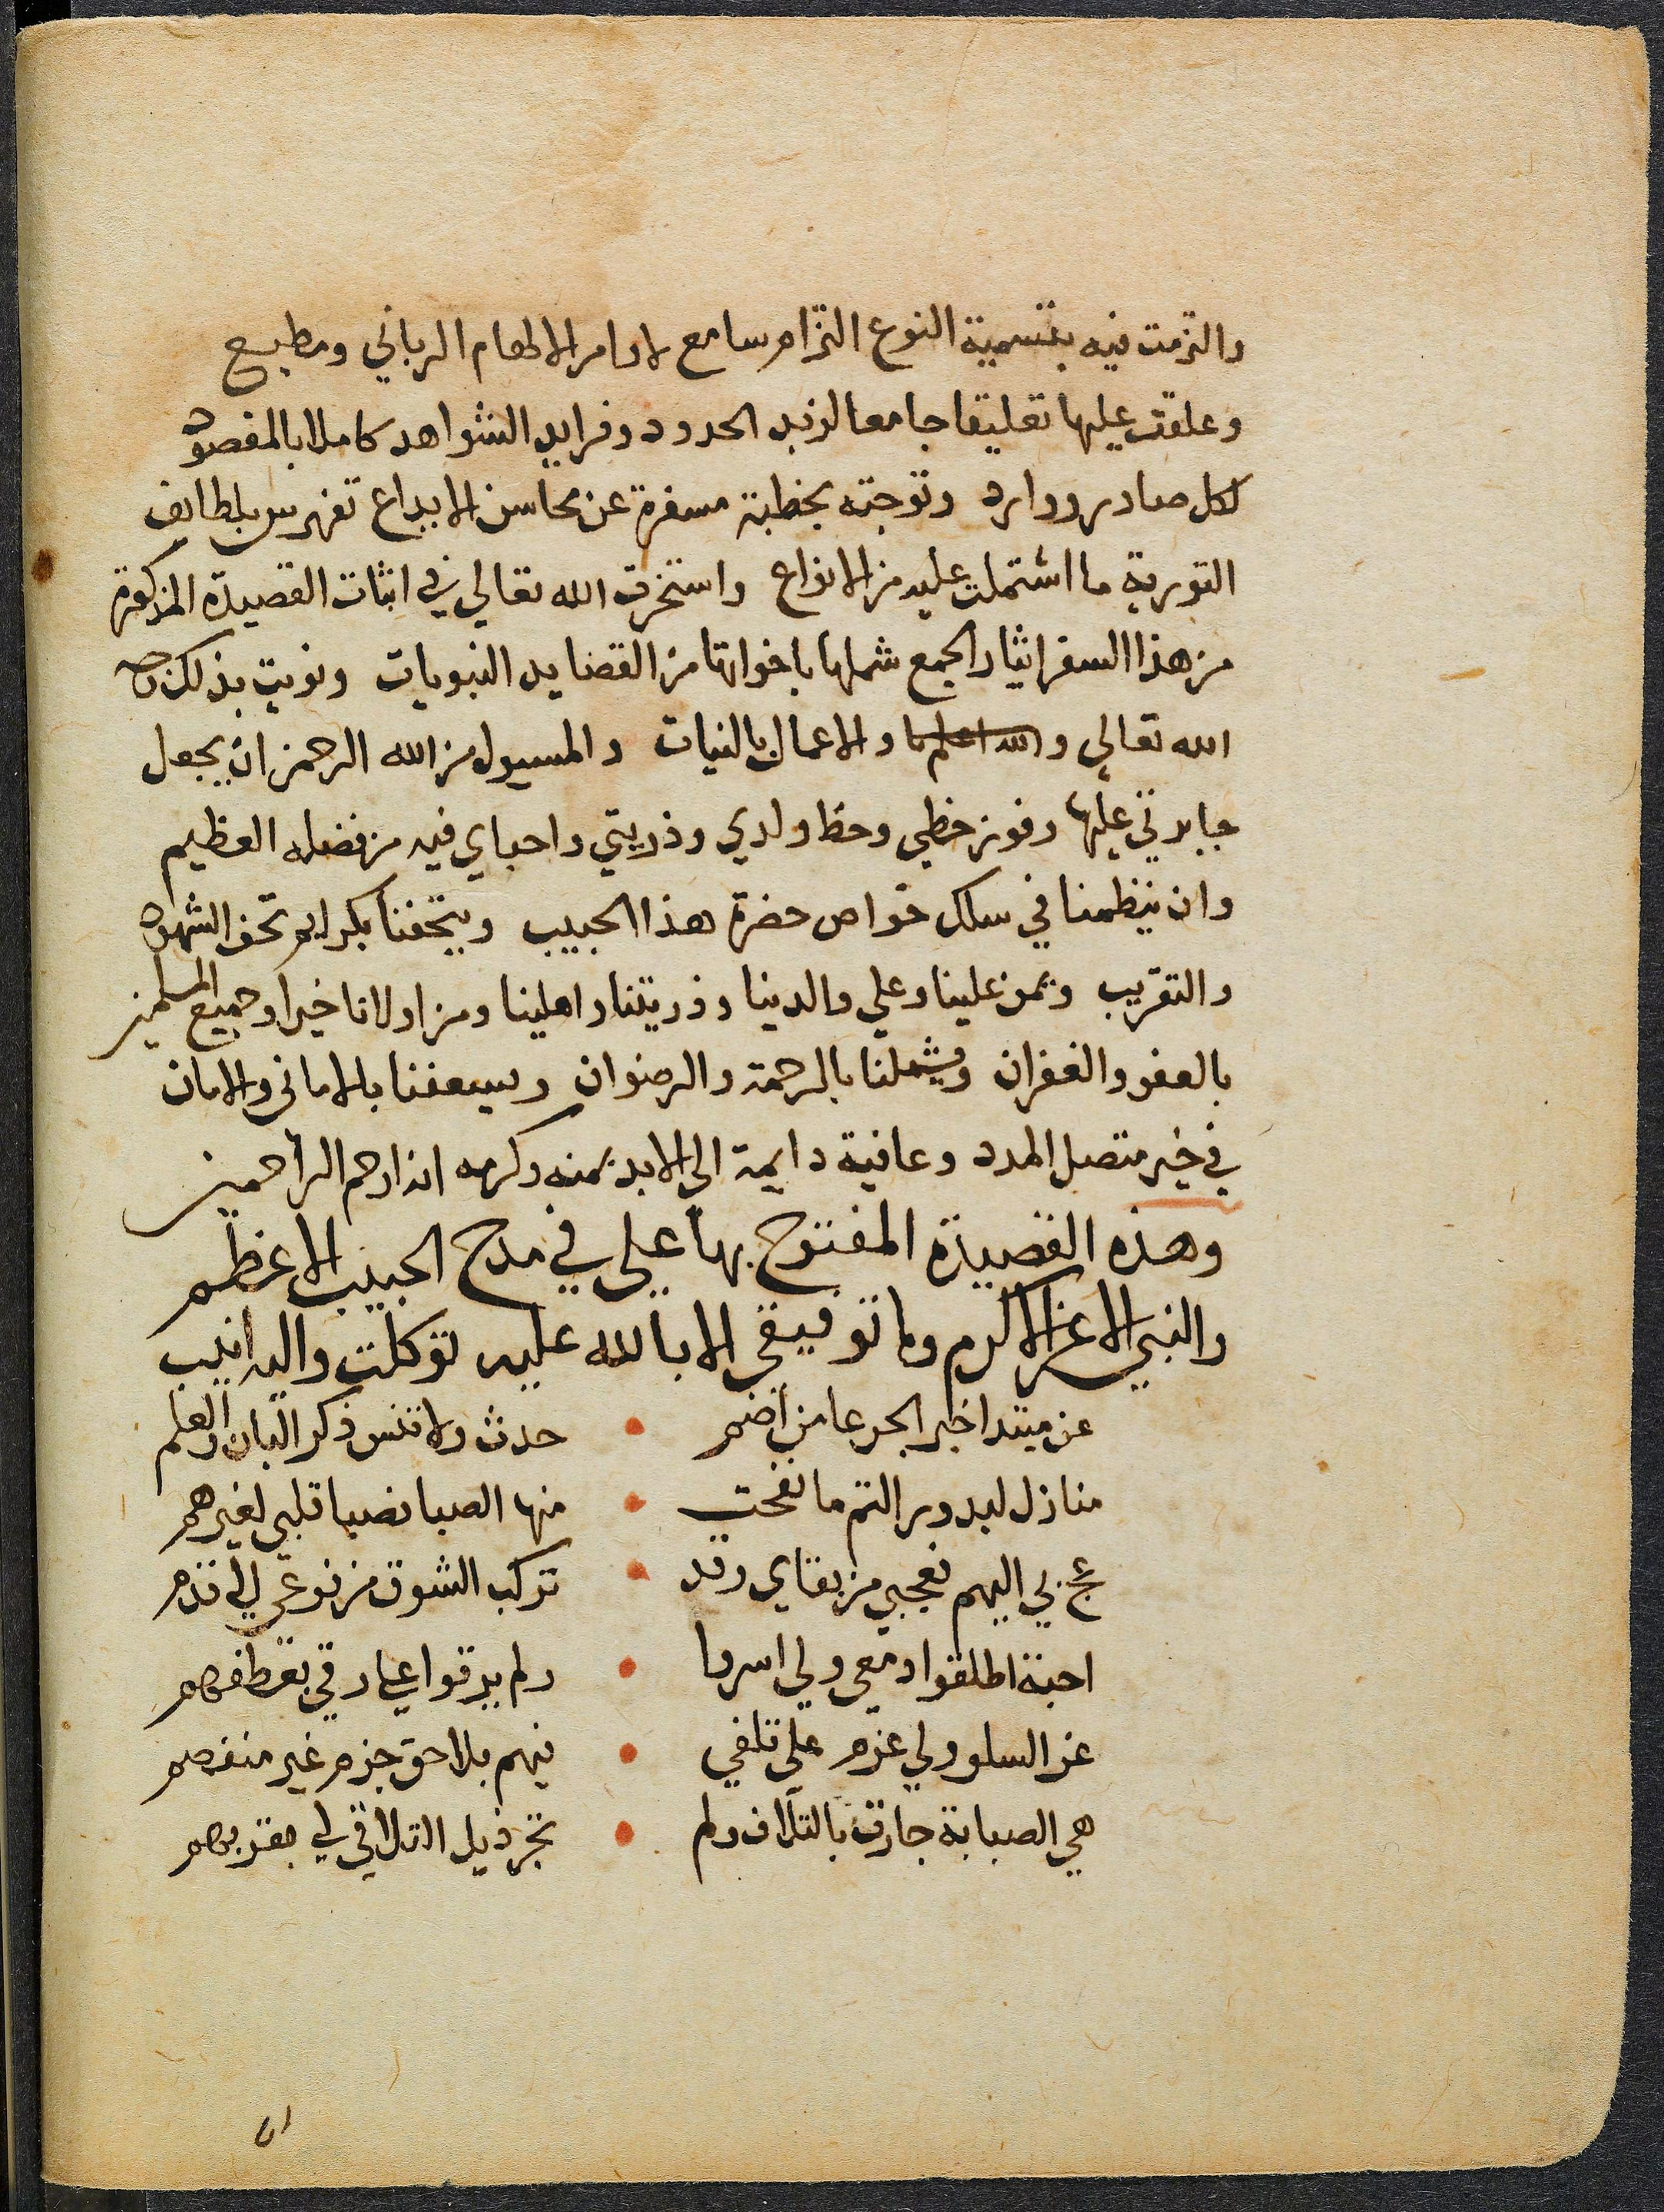 والتزمت فيه بتسمية النوع التزام سامع لاوامر الالهام الرباني ومطيع
وعلقت عليها تعليقا جامعا لزبد الحدود وفرايد الشواهد كاملا بالمقصود
لكل صادر ووارد وتوجته بخطبة مسفرة عن محاسن الابداع تفهرس بلطايف
التورية ما اشتملت عليه من الانواع واستخرت الله تعالي في اثبات القصيدة المذكورة
من هذا السفر ايثار الجمع شملها باخواتها من القصايد النبويات ونويت بذلك وجه
الله تعالي والله اعلم والاعمال بالنيات والمسيول من الله الرحمن ان يجعل
جايزتي عليها وفور حظي وحظ ولدي وذريتي واحباي فيه من فضله العظيم
وان ينظمنا في سلك خواص حضرة هذا الحبيب ويتحفنا بكرايم تحف الشهود
والتقريب ويمن علينا وعلي والدينا وذريتنا واهلينا ومن اولانا خيرا وجميع المسلمين
بالعفو والغفران ويشملنا بالرحمة والرضوان ويسعفنا بالاماني والامان
في خير متصل المدد وعافية دايمة الي الابد بمنه وكرمه انه ارحم الراحمين
وهذه القصيدة المفتوح بها علي في مدح الحبيب الاعظم
والنبي الاعز الاكرم وما توفيقي الا بالله عليه توكلت واليه انيب
عن مبتدا خبر الجرعا من اضم • حدث ولا تنس ذكر البان والعلم
منازل لبدور التم ما نفحت • منها الصبا فصبا قلبي لغيرهم
عج بي اليهم فعجبي من بقاي وقد • تركب الشوق من فرعي الي قدم
احبة اطلقوا دمعي ولي اسروا • ولم يرقوا علي رقي بعطفهم
عن السلو ولي عزم علي تلفي • فيهم بلا حق جزم غير منفصم
هي الصبابة جارت بالتلاف ولم • تجر ذيل التلاقي لي بقربهم